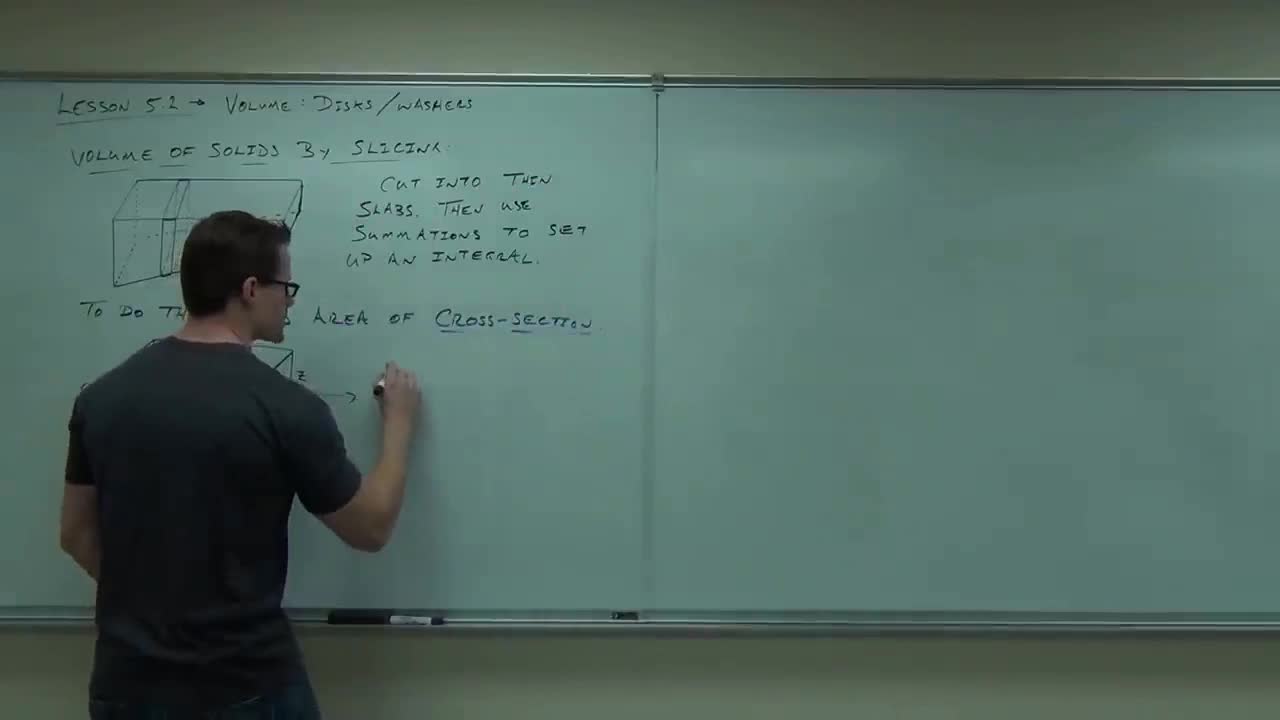 LESSON 5.2 → VOLUME: DISKS/WASHERS
VOLUME OF SOLIDS BY SLICING:
CUT INTO THIN
SLABS. THEN USE
SUMMATIONS TO SET
UP AN INTEGRAL.
TO DO AREA OF CROSS-SECTION.
Z